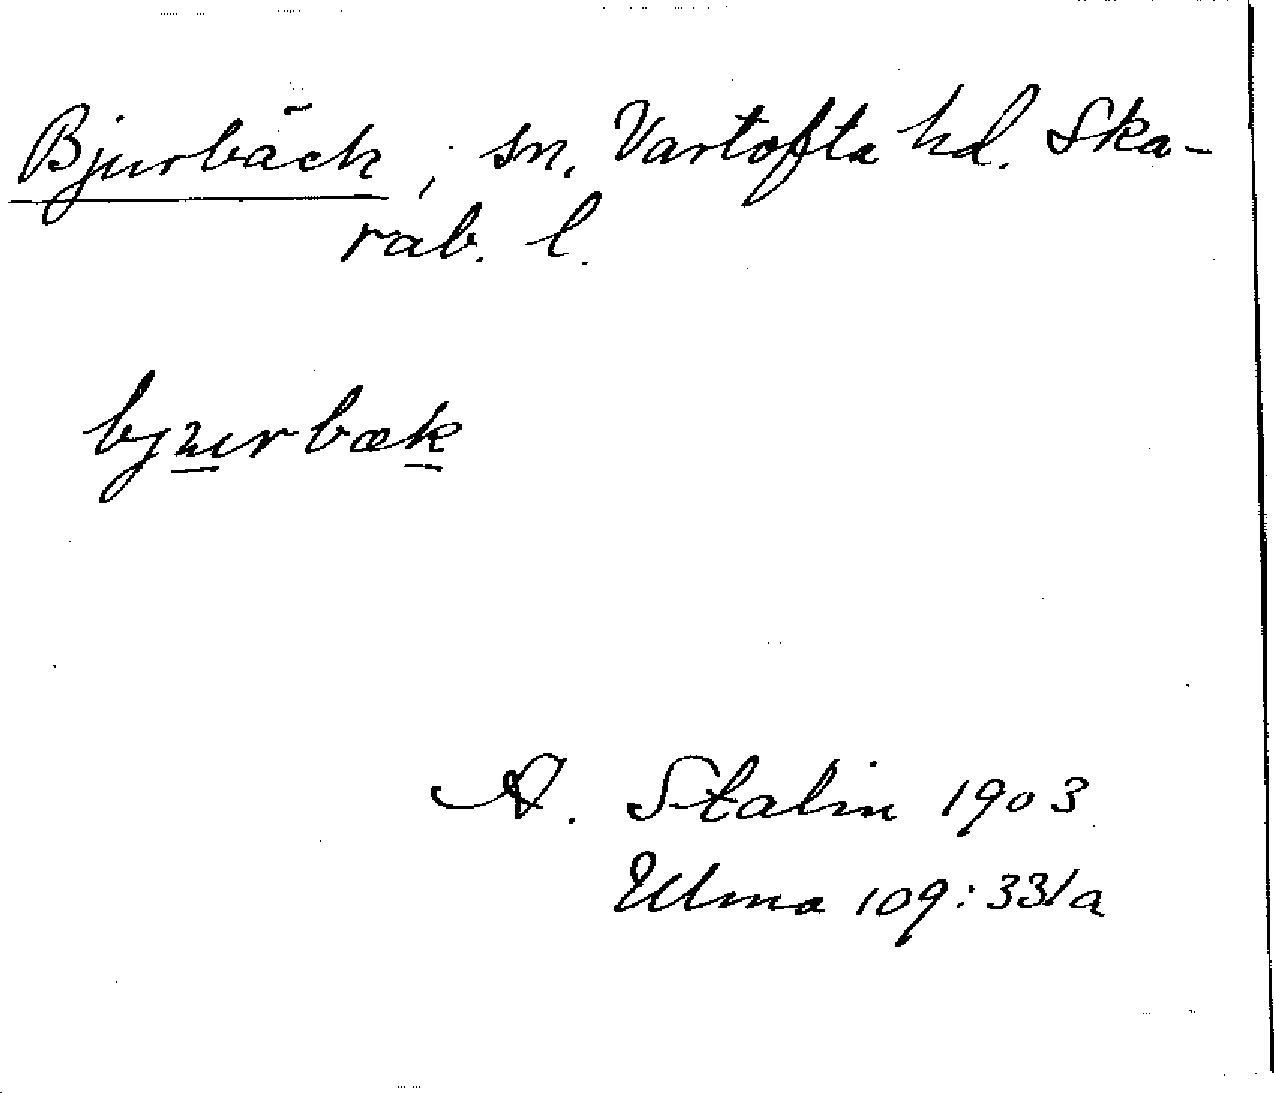 Bjurbäck, sn. Vartofta hd. Ska-
rab. l.
bjurbæk
A. Stalin 1903
Ulma 109:331a